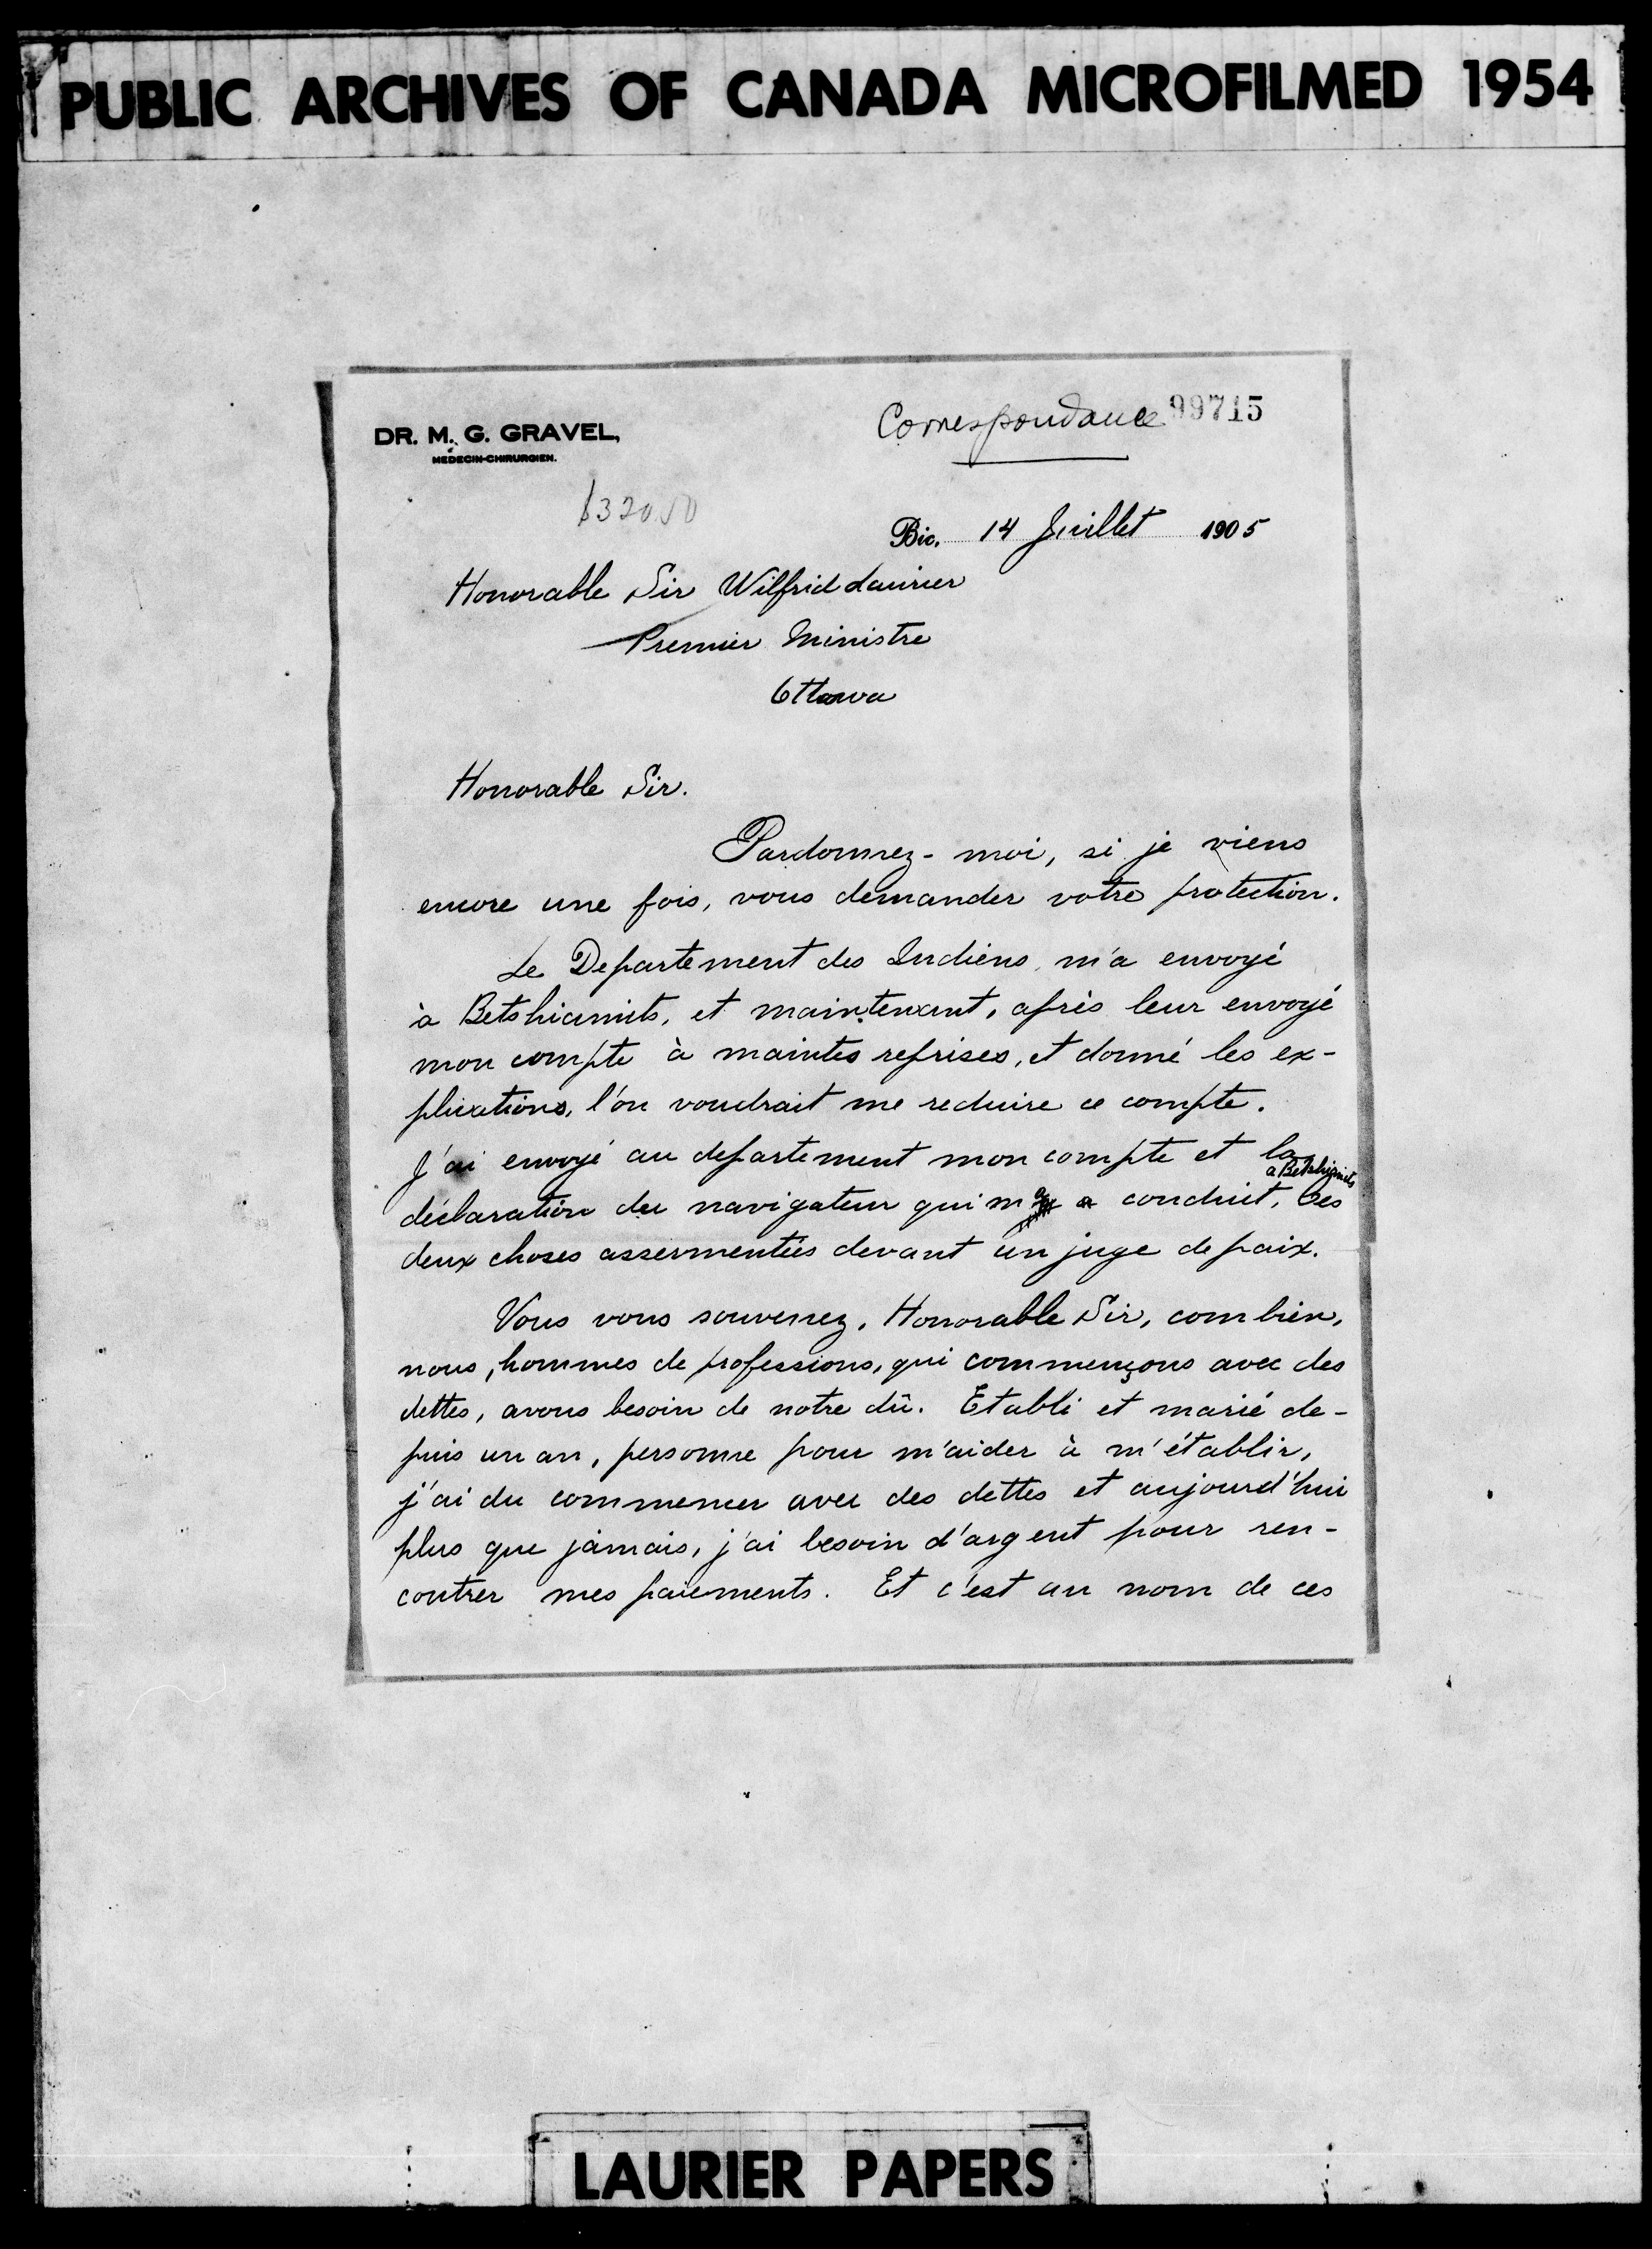 PUBLIC ARCHIVES OF CANADA MICROFILMED 1954
Correspondance 99715
DR. M. G. GRAVEL,
MÉDECIN-CHIRURGIEN.
$320.50
Bic. 14 Juillet 1905
Honorable Sir Wilfrid Laurier
Premier Ministre
Ottawa
Honorable Sir.
Pardonnez-moi, si je viens
encore une fois, vous demander votre protection.
Le Departement des Indiens m'a envoyé
à Betshiamits, et maintenant, après leur envoyé
mon compte à maintes reprises, et donné les ex-
plications, l'on voudrait me reduire ce compte.
J'ai envoyé au departement mon compte et la
a Betshiamits
déclaration du navigateur qui m'a conduit, Ces
deux choses assermentées devant un juge de paix.
Vous vous souvenez, Honorable Sir, combien,
nous, hommes de professions, qui commençons avec des
dettes, avons besoin de notre dû. Etabli et marié de-
puis un an, personne pour m'aider à m'établir,
j'ai du commencer avec des dettes et aujourd'hui
plus que jamais, j'ai besoin d'argent pour ren-
contrer mes paiements. Et c'est au nom de ces
LAURIER PAPERS